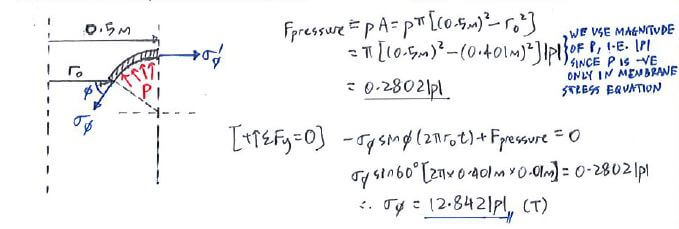 0.5M
r₀
φ
σφ
σφ'
P
Fpressure = pA = pπ[(0.5M)² - r₀²]
= π[(0.5M)² - (0.401M)²]|p|
= 0.2802|p|
WE USE MAGNITUDE
OF P, I.E. |P|
SINCE P IS -VE
ONLY IN MEMBRANE
STRESS EQUATION
[+↑ΣFy=0] -σφ sinφ(2πr₀t) + Fpressure = 0
σφ sin60°[2π×0.401M×0.01M] = 0.2802|p|
∴ σφ = 12.842|p| (T)